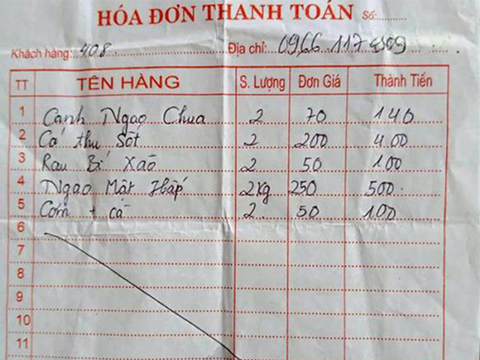 HÓA ĐƠN THANH TOÁN Số:
Khách hàng: 408 Địa chỉ: 0966 117 889
TT TÊN HÀNG S. Lượng Đơn Giá Thành Tiền
1 Canh Ngao Chua 2 70 140
2 Cá thu Sốt 2 200 400
3 Rau Bí Xào 2 50 100
4 Ngao Mật Hấp 2kg 250 500
5 Cơm + cà 2 50 100
6
7
8
9
10
11